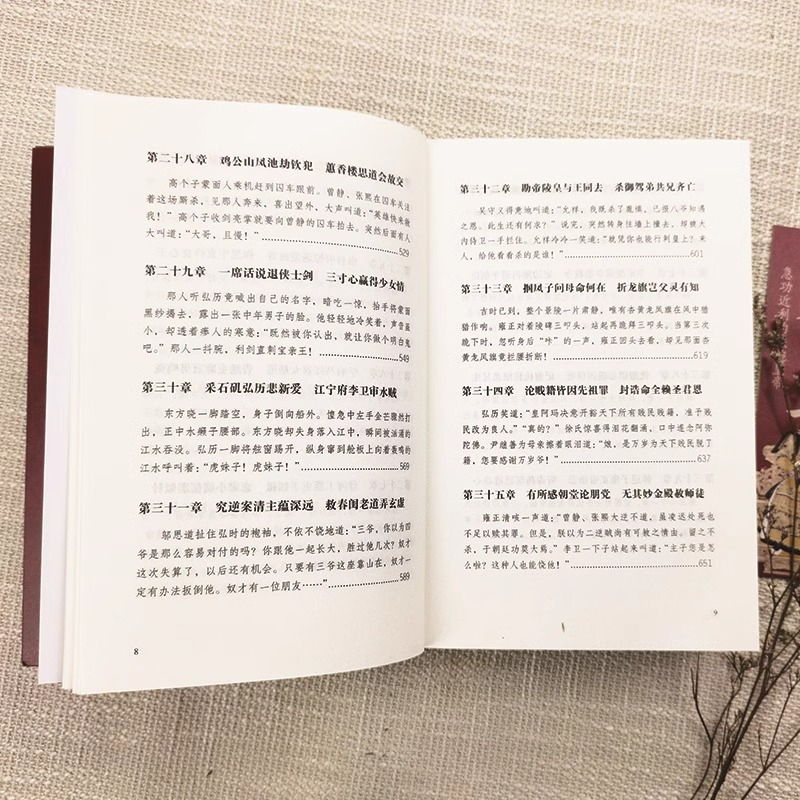 第二十八章 鸡公山凤池劫钦犯 蕙香楼思道会故交
高个子蒙面人乘机赶到囚车跟前。曾静、张熙在囚车关注
着这场厮杀，见那人奔来，喜出望外，大声叫道：“英雄快来救
我！”高个子收剑亮掌就要向曾静的囚车拍去。突然后面有人
大叫道：“大哥，且慢！” 529
第二十九章 一席话说退侠士剑 三寸心赢得少女情
那人听弘历竟喊出自己的名字，暗吃一惊，抬手将蒙面
黑纱揭去，露出一张中年男子的脸。他轻轻地冷笑着，声音虽
小，却透着瘆人的寒意：“既然被你认出，就让你做个明白鬼
吧。”那人一抖腕，利剑直刺宝亲王！ 549
第三十章 采石矶弘历悲新爱 江宁府李卫审水贼
东方晓一脚踏空，身子倒向船外。惶急中左手金芒骤然打
出，正中水癞子腰部。东方晓却失身落入江中，瞬间被汹涌的
江水吞没。弘历一脚将舷窗踢开，纵身窜到舱板上向着滚滚的
江水呼叫着：“虎妹子！虎妹子！ 569
第三十一章 究逆案清主蕴深远 救春闺老道弄玄虚
邬思道扯住弘时的袍袖，不依不饶地道：“三爷，你以为四
爷是那么容易对付的吗？你跟他一起长大，胜过他几次？奴才
这次失算了，以后还有机会。只要有三爷这座靠山在，奴才一
定有办法扳倒他。奴才有一位朋友……” 589
8
第三十二章 勘帝陵皇与王同去 杀御驾弟共兄齐亡
吴守义得意地叫道：“允祥，我既杀了胤禛，已报八爷知遇
之恩。此生还有何求？”说完，突然转身往墙上撞去，却被大
内侍卫一手拦住。允祥冷冷一笑：“就凭你也能行刺皇上？来
人，给他看看杀的是谁！” 601
第三十三章 捆凤子问母命何在 折龙旗岂父灵有知
吉时已到，整个景陵一片肃静，唯有杏黄龙凤旗在风中猎
猎作响。雍正对着陵碑三叩头，站起再跪再三叩头。当第三次
跪下时，忽听身后“咔”的一声，雍正回头去看，却见那面杏
黄龙凤旗竟拦腰折断！ 619
第三十四章 沦贱籍皆因先祖罪 封诰命全赖圣君恩
弘历笑道：“皇阿玛决意开豁天下所有贱民贱籍，准予贱
民改为良人。”“真的？”徐氏惊喜得泪花翻涌，口中连念阿弥
陀佛。尹继善为母亲擦着眼泪道：“娘，是万岁为天下贱民脱了
籍，您要感谢万岁爷！” 637
第三十五章 有所感朝堂论朋党 无其妙金殿赦师徒
雍正清咳一声道：“曾静、张熙大逆不道，虽凌迟处死也
不足以赎其罪。但是，朕以为二逆贼尚有可赦之情由。留之不
杀，于朝廷功莫大焉。”李卫一下子站起来叫道：“主子您是怎
么啦？这种人也能饶他！” 651
9
急功近利